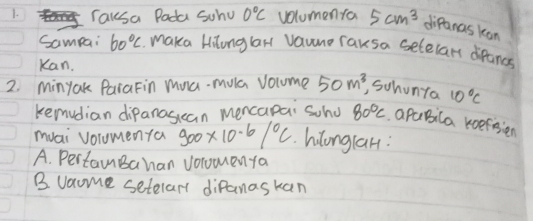 1. raksa Pada suhu 0°C volumenya 5 cm³ dipanaskan
sampai 60°C. Maka Hitunglah Vaume raksa setelah dipanas
kan.
2. minyak Parafin mula-mula Volume 50 m³, suhunya 10°C
kemudian dipanaskan mencapai suhu 80°C. apabila koefisien
muai volumenya 900 x 10-6 /°C. hitunglah:
A. Pertambahan volumenya
B. Vaume setelah dipanaskan